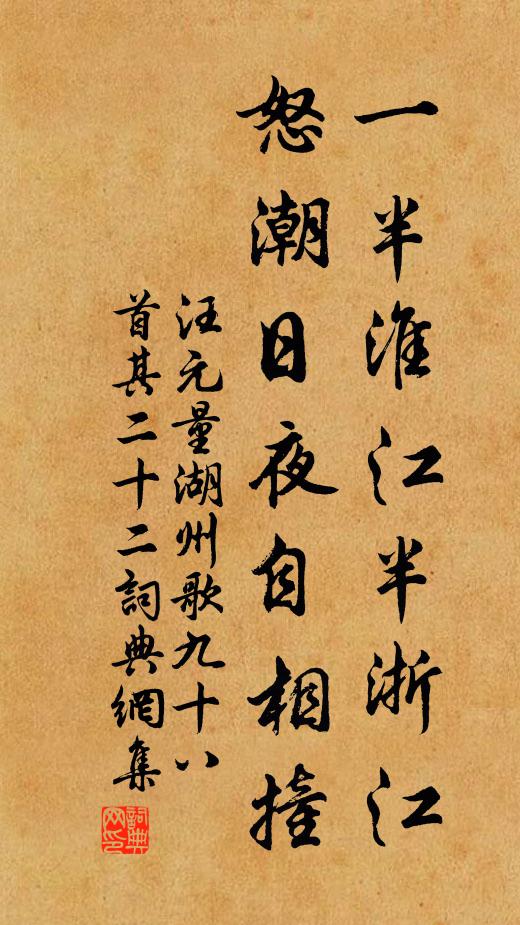 一半淮江半浙江
怒潮日夜自相撞
汪元量湖州歌九十八
首其二十二詞典網集
詞典網印